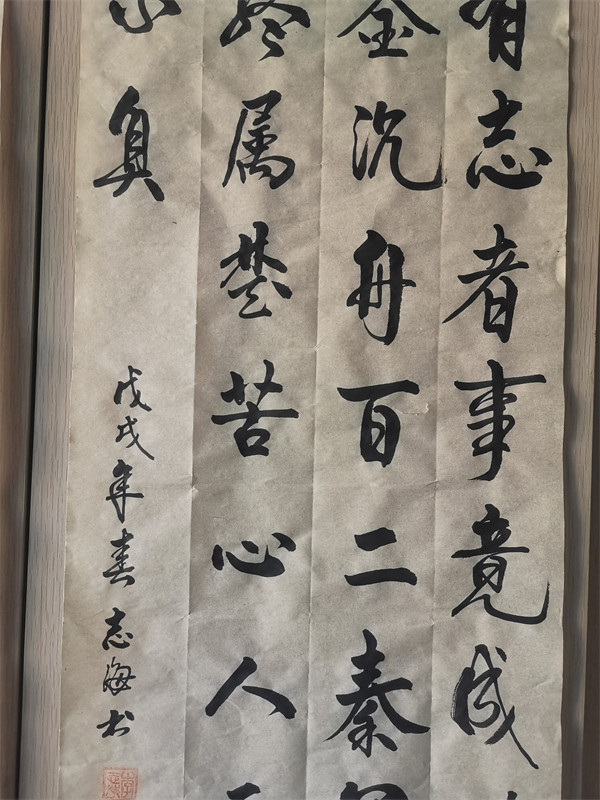 有志者事竟成
釜沉舟百二秦
终属楚苦心人
不負
戊戌年春志海书